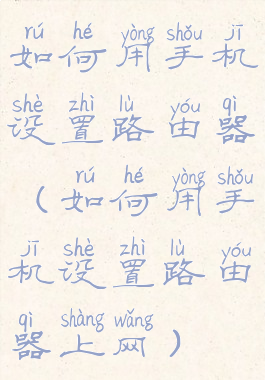 rú hé yòng shǒu jī
如何用手机
shè zhì lù yóu qì
设置路由器
rú hé yòng shǒu
（如何用手
jī shè zhì lù yóu
机设置路由
qì shàng wǎng
器上网）